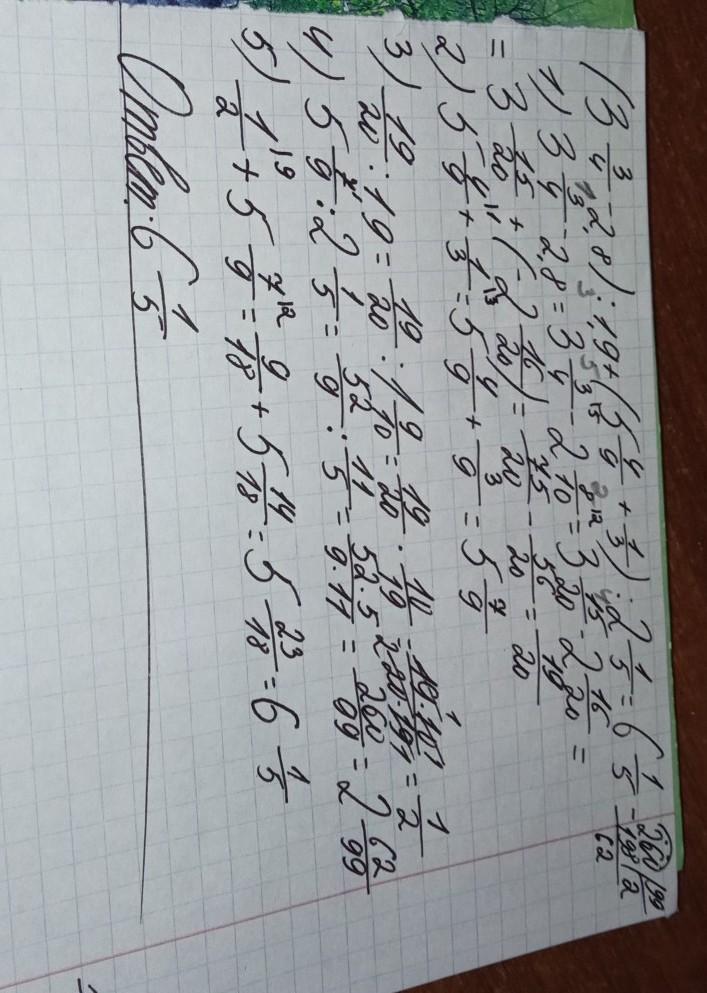 (3 3/4 - 2,8) : 1,9 + (5 4/9 + 1/3) : 2 1/5 = 6 1/5
1) 3 3/4 - 2,8 = 3 3/4 - 2 8/10 = 3 15/20 - 2 16/20 =
= 3 15/20 + (-2 16/20) = 75/20 - 56/20 = 19/20
2) 5 4/9 + 1/3 = 5 4/9 + 3/9 = 5 7/9
3) 19/20 : 1,9 = 19/20 : 1 9/10 = 19/20 · 10/19 = 19·10/20·19 = 1/2
4) 5 7/9 : 2 1/5 = 52/9 : 11/5 = 52·5/9·11 = 260/99 = 2 62/99
5) 1/2 + 5 7/9 = 9/18 + 5 14/18 = 5 23/18 = 6 1/5
Ответ: 6 1/5
260 | 99
198 | 2
62